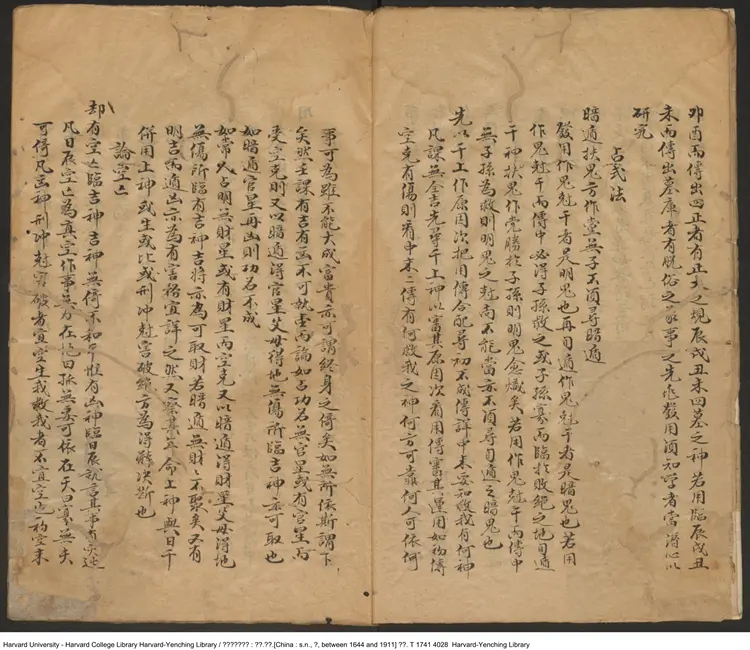 卯酉而傳出四正者有正大之規辰戌丑未四墓之神若用臨辰戌丑
未而傳出墓庫者有脫俗之家事之先作發用須知學者當潛心以
研究
占式法
暗遁扶鬼方作堂無子不須尋暗遁
發用作鬼尅干者是明鬼也再旬遁作鬼尅干者是暗鬼也若用
作鬼尅干而傳中必得子孫救之或子孫衰而臨於敗絕之地旬遁
干神扶鬼作党勝於子孫則明鬼愈熾矣若用作鬼尅干而傳中
無子孫為救則明鬼之尅尚不能當亦不須尋旬遁之暗鬼也
先以干上作原因次把用傳合配尋初不成傳詳中末要知救我有何神
凡課無全吉先尋干上神以審其原因次看用傳審其運用如初傳
空克有傷則看中末二傳有何救我之神何方可靠何人可依何
事可為雖不能大成富貴亦可謂終身之倚矣如無所依斯謂下
矣然壬課有吉有凶不可執壹而論如占功名無官星或有官星而
受空克則又以暗遁得官星父母得地無傷所臨吉神亦可取也
如暗遁官星再凶則功名不成
如常人占明無財星或有財星而空克又以暗遁得財星父母得地
無傷所臨有吉神吉將亦為可取財若暗遁無財財不聚矣又有
明吉而遁凶亦為有害務宜詳之然又察其年命上神與日干
併用上神或生或比或刑冲尅害破絕方為得能決斷也
論空亡
却有空亡臨吉神吉神無倚不和平惟有凶神臨日辰就言其事有災迍
凡日辰空亡為真空作事無力在地曰孤無處可依在天曰寡無夫
可倚凡凶神刑冲尅害破者宜空生我救我者不宜空也初空末
Harvard University - Harvard College Library Harvard-Yenching Library / ??????? : ??.??.[China : s.n., ?, between 1644 and 1911] ??. T 1741 4028 Harvard-Yenching Library